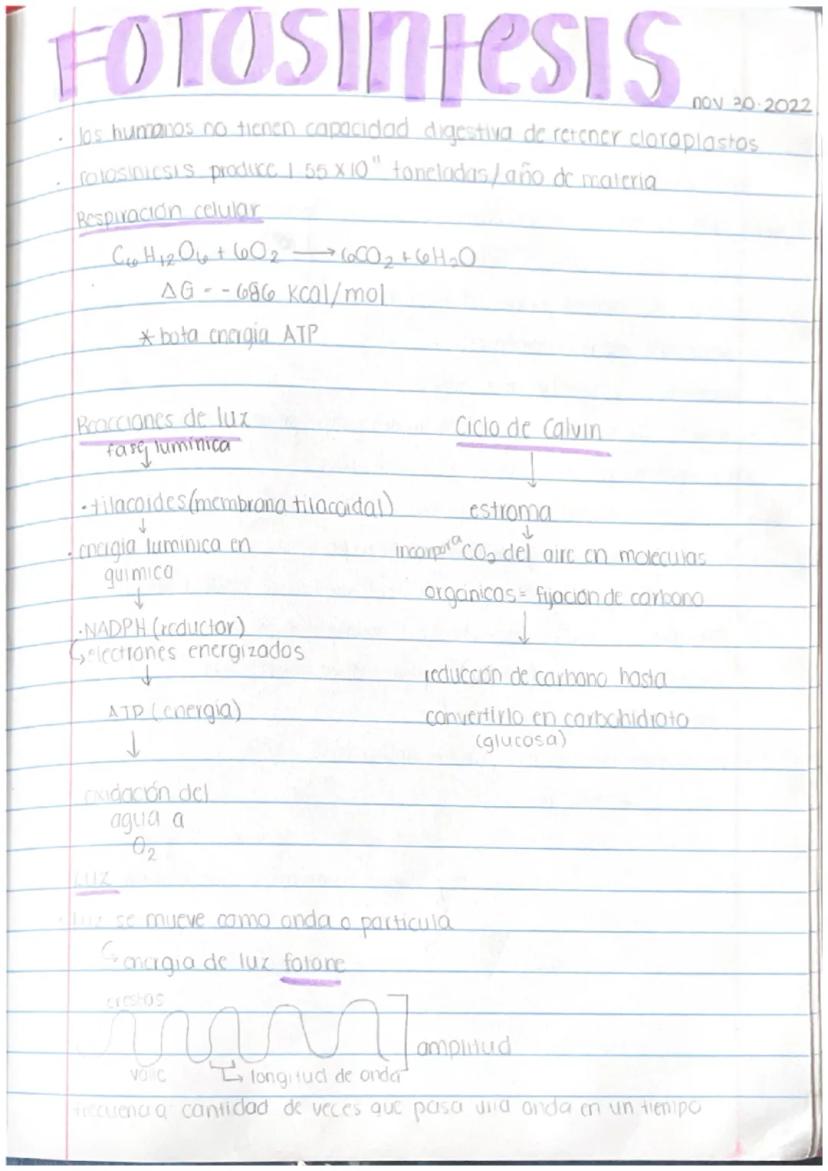 FOTOSINTESIS
nov 30.2022
· los humanos no tienen capacidad digestiva de retener cloroplastos
· fotosintesis produce 1 55 x 10¹¹ toneladas/año de materia
Respiración celular
C₆H₁₂O₆ + 6O₂ → 6CO₂ + 6H₂O
ΔG = -686 Kcal/mol
* bota energia ATP
Reacciones de luz
fase lumínica
↓
· tilacoides (membrana tilacoidal)
↓
· energia luminica en
quimica
↓
· NADPH (reductor)
↳ electrones energizados
↓
ATP (energia)
↓
oxidación del
agua a
O₂
Ciclo de Calvin
↓
estroma
↓
incorpora CO₂ del aire en moleculas
organicos = fijación de carbono
↓
reducción de carbono hasta
convertirlo en carbohidrato
(glucosa)
LUZ
· luz se mueve como onda o particula
↳ energia de luz fotone
crestas
amplitud
valle
↳ longitud de onda
frecuencia cantidad de veces que pasa una onda en un tiempo